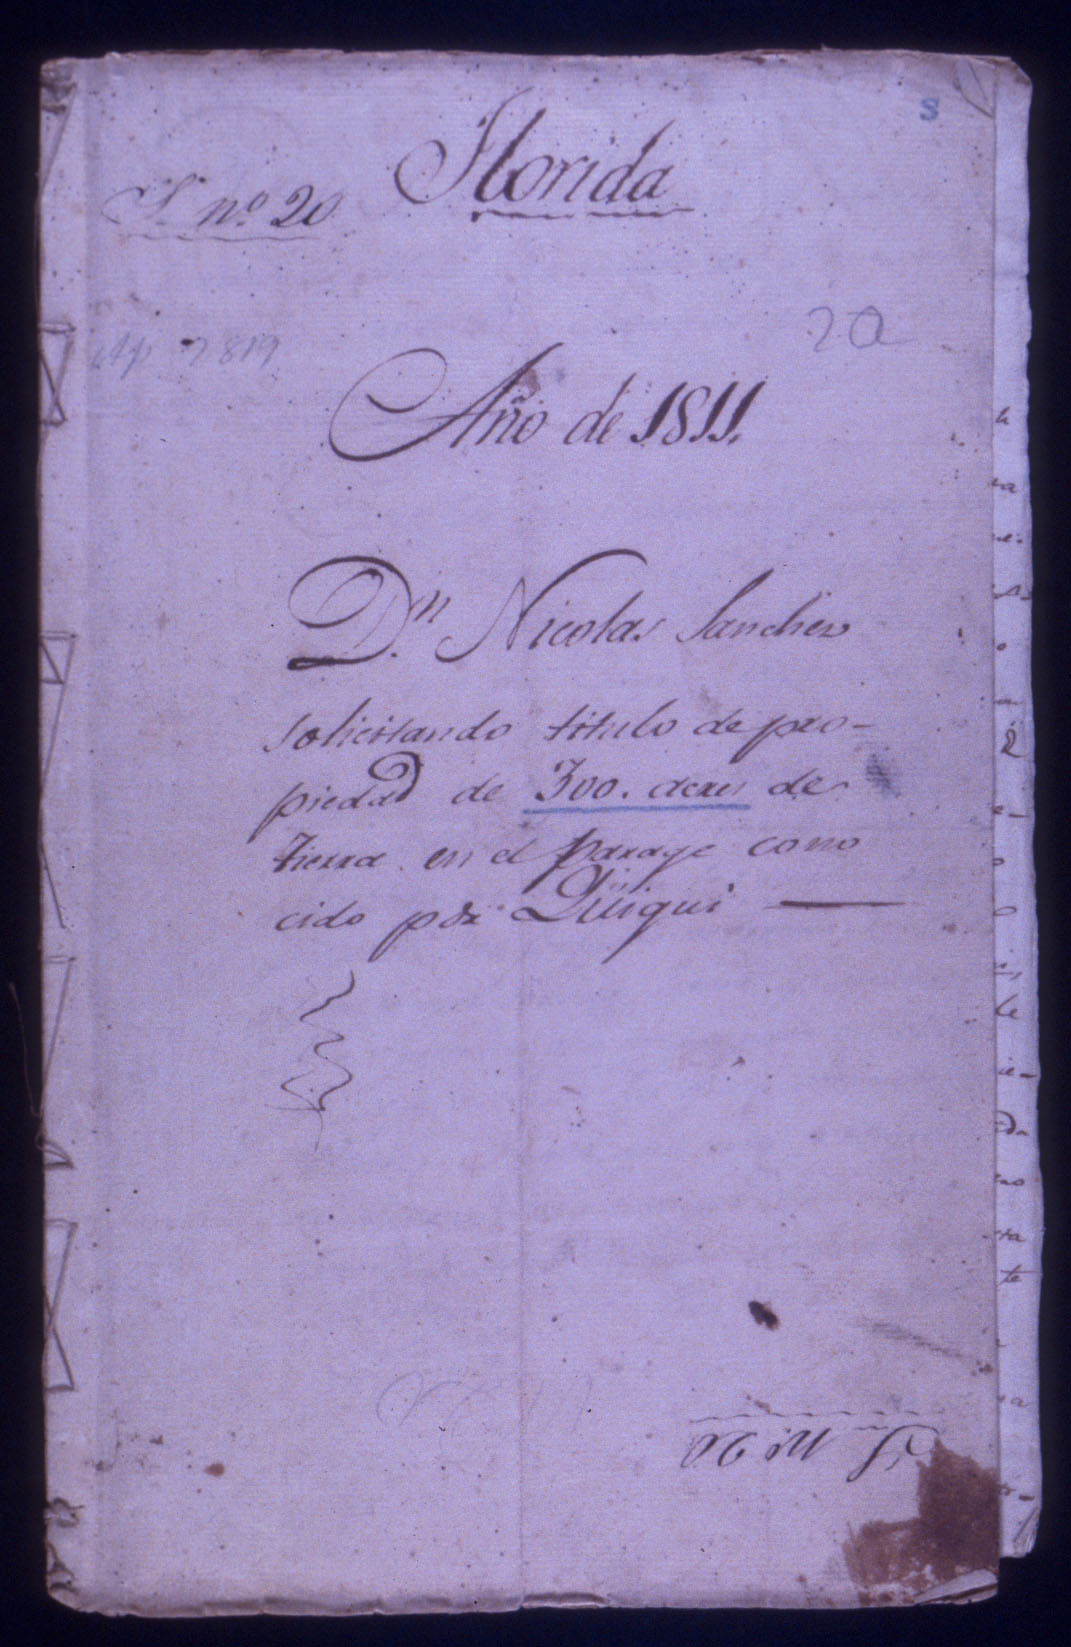 S
Florida
S. nº 20
20
Año de 1811.
Dn. Nicolas Sanchez
solicitando titulo de pro-
piedad de 300. acres de
tierra en el parage cono
cido por Qüiqui
S. Nº 20